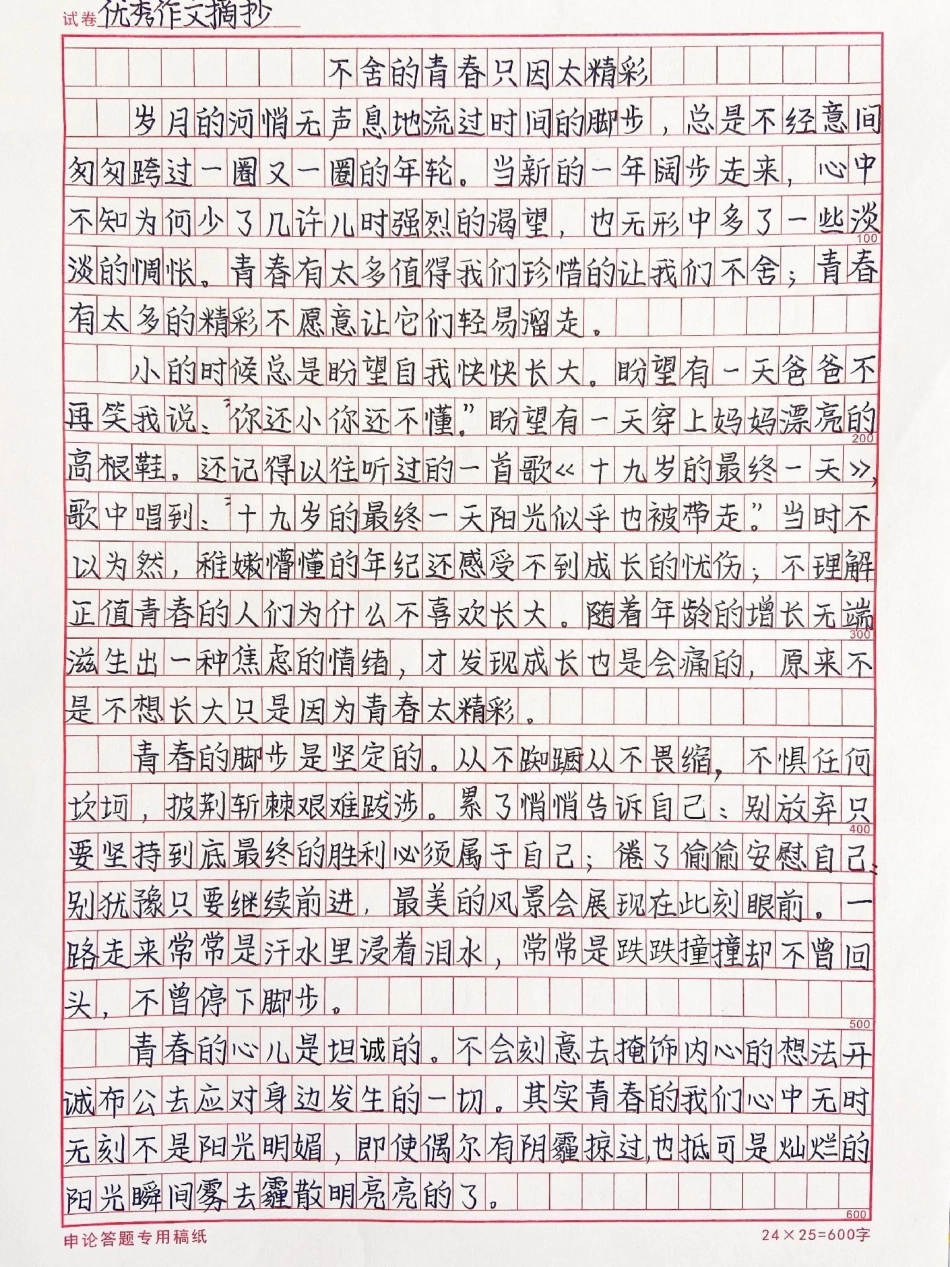 试卷 优秀作文摘抄
不舍的青春只因太精彩
岁月的河悄无声息地流过时间的脚步，总是不经意间
匆匆跨过一圈又一圈的年轮。当新的一年阔步走来，心中
不知为何少了几许儿时强烈的渴望，也无形中多了一些淡
100
淡的惆怅。青春有太多值得我们珍惜的让我们不舍；青春
有太多的精彩不愿意让它们轻易溜走。
小的时候总是盼望自我快快长大。盼望有一天爸爸不
再笑我说：“你还小你还不懂。”盼望有一天穿上妈妈漂亮的
200
高根鞋。还记得以往听过的一首歌《十九岁的最终一天》，
歌中唱到：“十九岁的最终一天阳光似乎也被带走。”当时不
以为然，稚嫩懵懂的年纪还感受不到成长的忧伤；不理解
正值青春的人们为什么不喜欢长大。随着年龄的增长无端
300
滋生出一种焦虑的情绪，才发现成长也是会痛的，原来不
是不想长大只是因为青春太精彩。
青春的脚步是坚定的。从不踟蹰从不畏缩，不惧任何
坎坷，披荆斩棘艰难跋涉。累了悄悄告诉自己：别放弃只
400
要坚持到底最终的胜利必须属于自己；倦了偷偷安慰自己：
别犹豫只要继续前进，最美的风景会展现在此刻眼前。一
路走来常常是汗水里浸着泪水，常常是跌跌撞撞却不曾回
头，不曾停下脚步。
500
青春的心儿是坦诚的。不会刻意去掩饰内心的想法开
诚布公去应对身边发生的一切。其实青春的我们心中无时
无刻不是阳光明媚，即使偶尔有阴霾掠过，也抵可是灿烂的
阳光瞬间雾去霾散明亮亮的了。
600
申论答题专用稿纸 24×25=600字